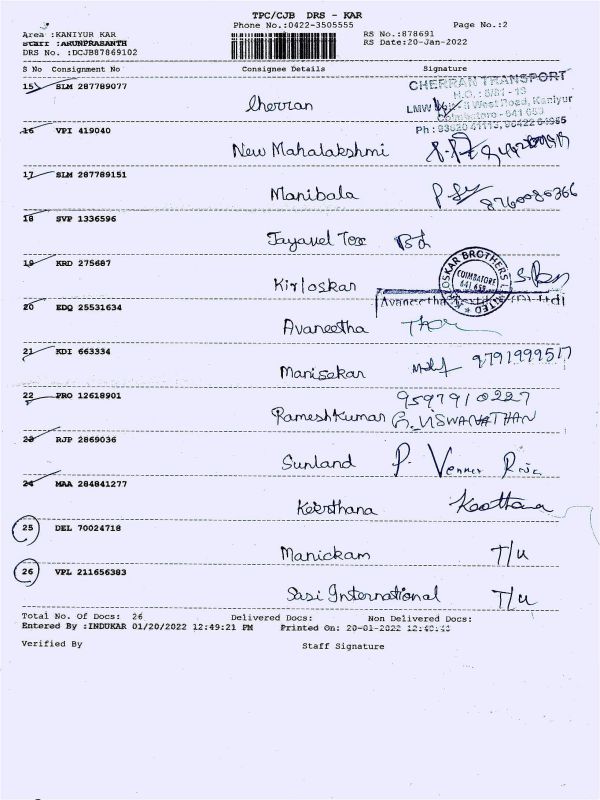 TPC/CJB DRS - KAR
Phone No.:0422-3505555 Page No.:2
Area :KANIYUR KAR RS No.:878691
Staff :ARUNPRASANTH RS Date:20-Jan-2022
DRS No. :DCJB87869102
S No Consignment No Consignee Details Signature
15 SLM 287789077
Cherran
CHERRAN TRANSPORT
Kaniyur
16 VPI 419040
New Mahalakshmi
17 SLM 287789151
Manibala 8760080366
18 SVP 1336596
Jayavel Tex
19 KRD 275687
Kirloskar
KIRLOSKAR BROTHERS LIMITED
COIMBATORE
641 659
20 EDQ 25531634
Avaneetha
21 KDI 663334
Manisekar 9791999517
22 PRO 12618901
9597910227
RameshKumar G. VISWANATHAN
23 RJP 2869036
Sunland P.
24 MAA 284841277
Keerthana Keerthana
25 DEL 70024718
Manickam T/u
26 VPL 211656383
Sasi International T/u
Total No. Of Docs: 26 Delivered Docs: Non Delivered Docs:
Entered By :INDUKAR 01/20/2022 12:49:21 PM Printed On: 20-01-2022
Verified By Staff Signature